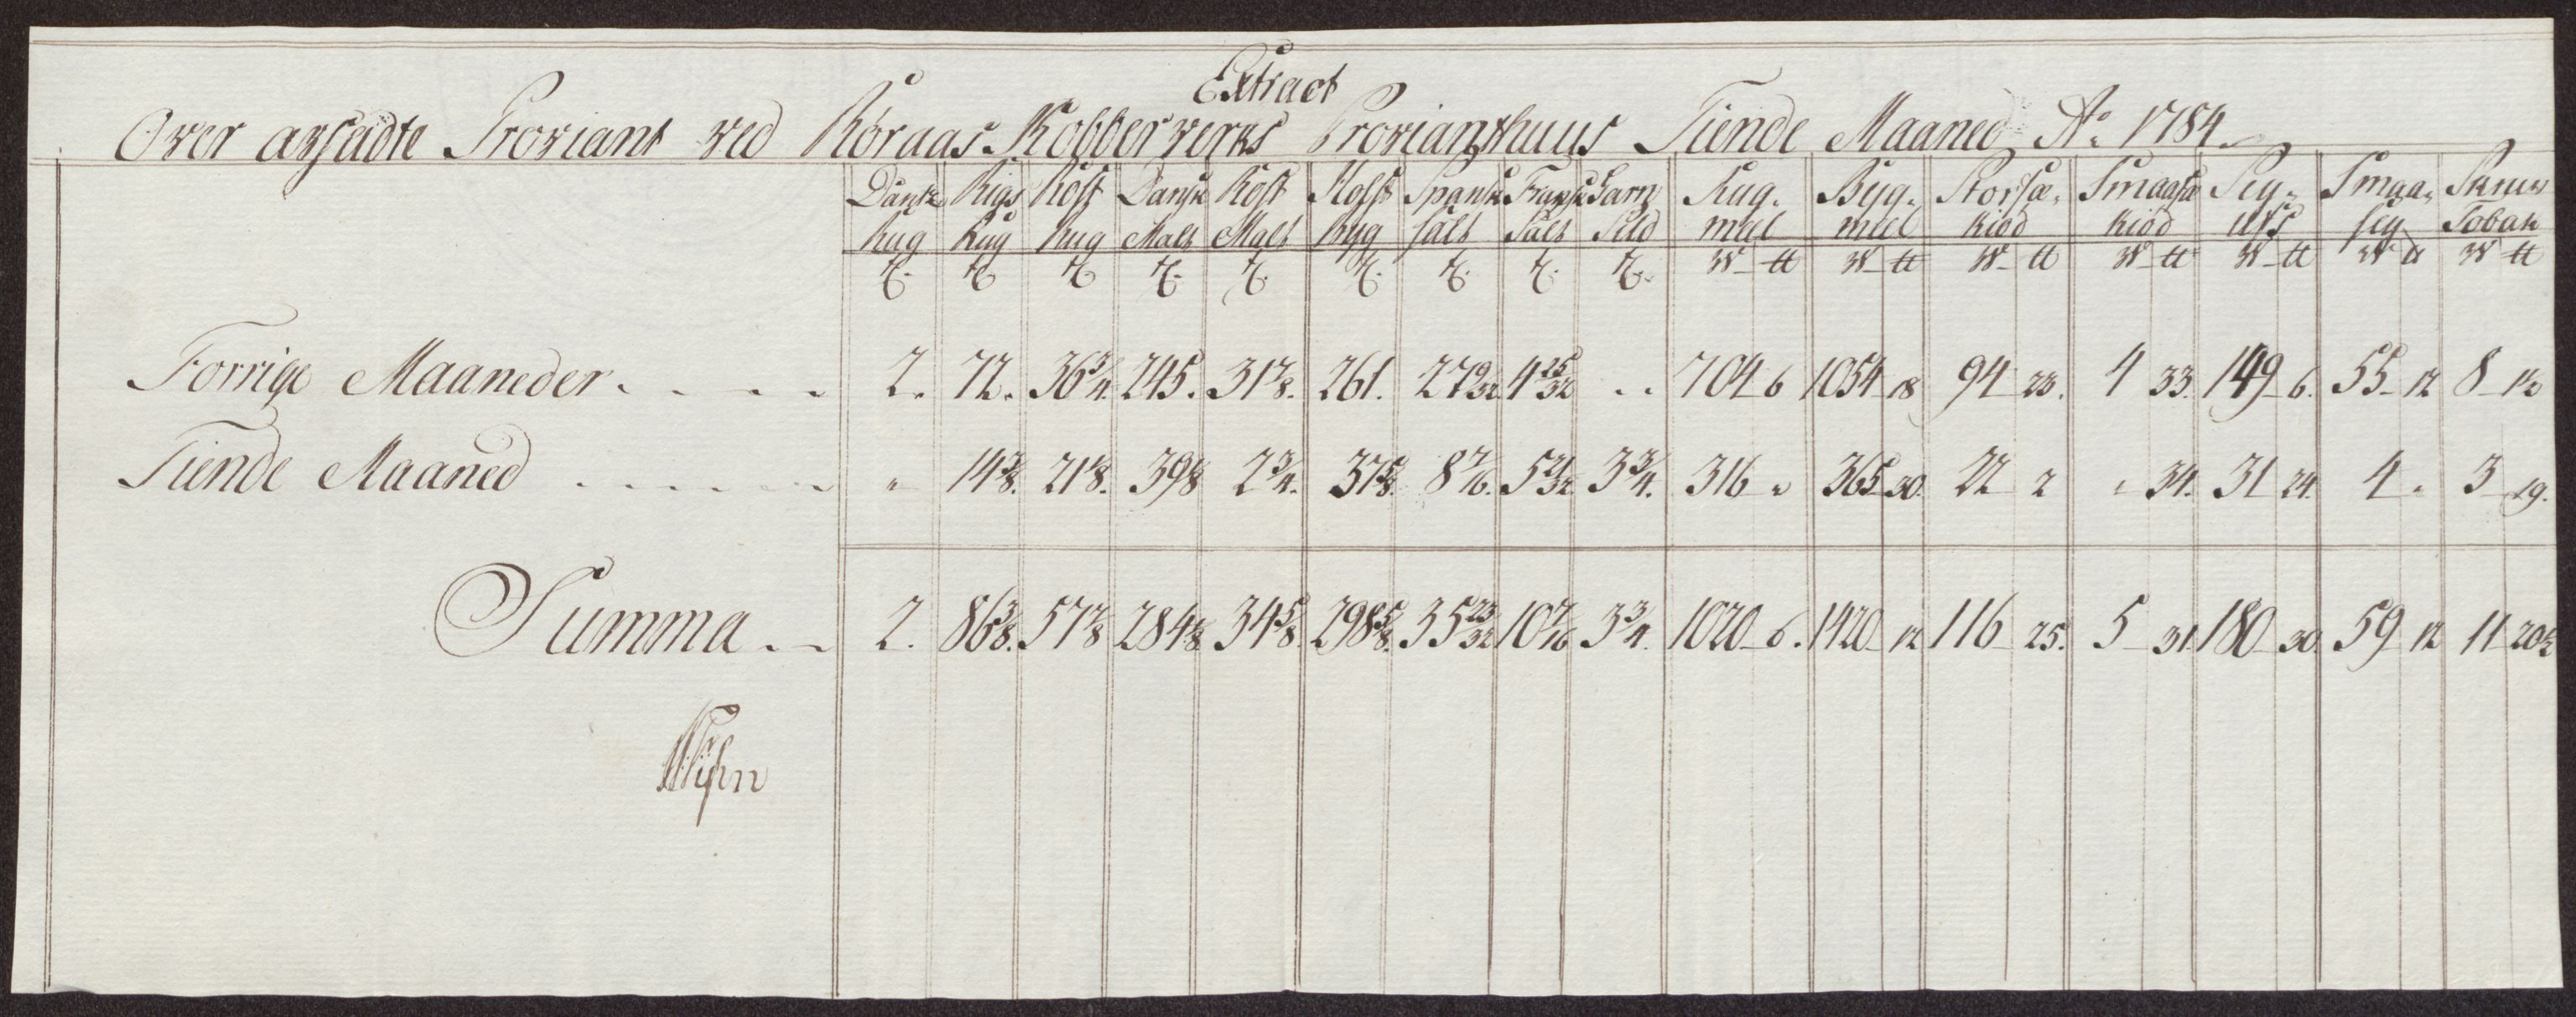 Extract
Over afsadte Proviant ved Röraas Kobberverks Provianthuus Tiende Maaned Ao 1784.
Dansk Rug | Rigs Rug | Röst Rug | Dansk Malt | Röst Malt | Röst Byg | Spansk Salt | Fransk Salt | Sild | Rug- meel | Byg- meel | Storsæ- kiöd | Smaasæ kiöd | Sey- | Smaa- sey | Skrue Tobak
T. | T. | T. | T. | T. | T. | T. | T. | T. | W - tt | W - tt | W - tt | W - tt | W - tt | W tt | W tt
Forrige Maaneder . . . . 2. | 72. | 36 3/4. | 245. | 31 7/8. | 261. | 27 9/32 | 4 25/32 | .. | 704 6 | 1054 18 | 94 23. | 4 33. | 149 6. | 55 12 | 8 1 1/2
Tiende Maaned . . . . " | 14 3/8. | 21 1/8. | 39 1/8 | 2 3/4. | 37 5/8. | 8 7/16. | 5 21/32 | 3 3/4. | 316 " | 365 30. | 22 2 | " 34. | 31 24. | 4 " | 3 19.
Summa . . 2. | 86 3/8. | 57 7/8 | 284 1/8 | 34 5/8. | 298 5/8. | 35 23/32 | 10 7/16 | 3 3/4. | 1020 6. | 1420 12 | 116 25. | 5 31 | 180 30. | 59 12 | 11 20 1/2